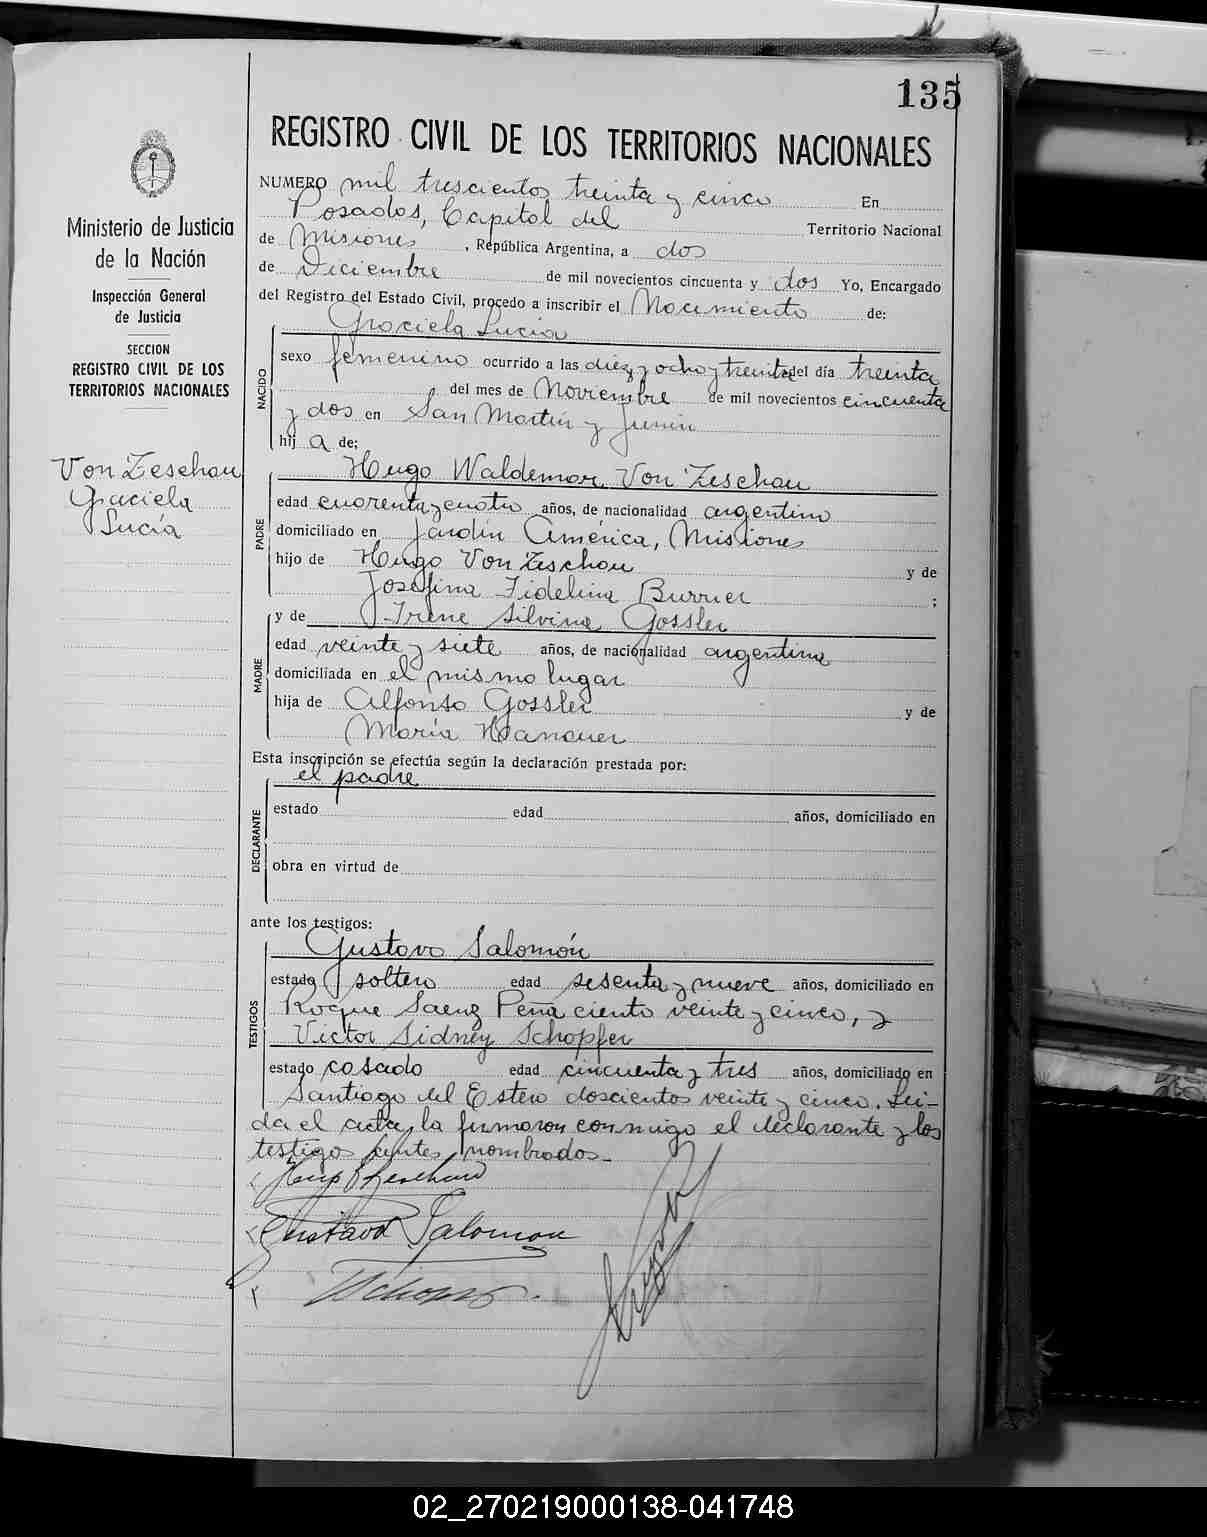 135
REGISTRO CIVIL DE LOS TERRITORIOS NACIONALES
Ministerio de Justicia
de la Nación
Inspección General
de Justicia
SECCION
REGISTRO CIVIL DE LOS
TERRITORIOS NACIONALES
Von Zeschau
Graciela
Lucía
NUMERO mil trescientos treinta y cinco En
Posadas, Capital del Territorio Nacional
de Misiones, República Argentina, a dos
de Diciembre de mil novecientos cincuenta y dos Yo, Encargado
del Registro del Estado Civil, procedo a inscribir el Nacimiento de:
NACIDO
Graciela Lucía
sexo femenino ocurrido a las diez y ocho y treinta del día treinta
del mes de Noviembre de mil novecientos cincuenta
y dos en San Martín y Junín
hij a de;
PADRE
Hugo Waldemar Von Zeschau
edad cuarenta y cuatro años, de nacionalidad argentino
domiciliado en Jardín América, Misiones
hijo de Hugo Von Zeschau y de
Josefina Fidelina Burrier ;
y de Irene Silvina Gossler
MADRE
edad veinte y siete años, de nacionalidad argentina
domiciliada en el mismo lugar
hija de Alfonso Gossler y de
María Hanauer
Esta inscripción se efectúa según la declaración prestada por:
el padre
DECLARANTE
estado edad años, domiciliado en
obra en virtud de
ante los testigos:
TESTIGOS
Gustavo Salomón
estado soltero edad sesenta y nueve años, domiciliado en
Roque Saenz Peña ciento veinte y cinco, y
Victor Sidney Schopfer
estado casado edad cincuenta y tres años, domiciliado en
Santiago del Estero doscientos veinte y cinco. Lei-
da el acta, la firmaron conmigo el declarante y los
testigos antes nombrados.-
Gustavo Salomon
02_270219000138-041748